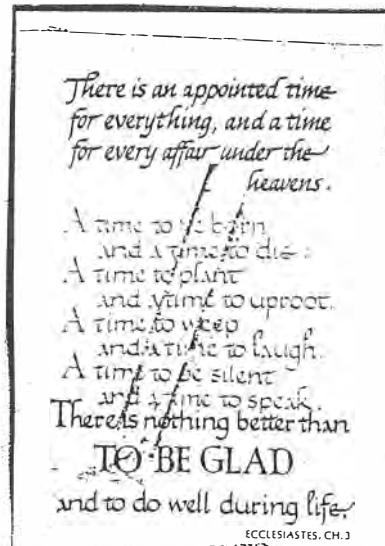 There is an appointed time
for everything, and a time
for every affair under the
heavens.
A time to be born
and a time to die:
A time to plant
and a time to uproot.
A time to weep
and a time to laugh.
A time to be silent
and a time to speak.
There is nothing better than
TO BE GLAD
and to do well during life.
ECCLESIASTES, CH. 3